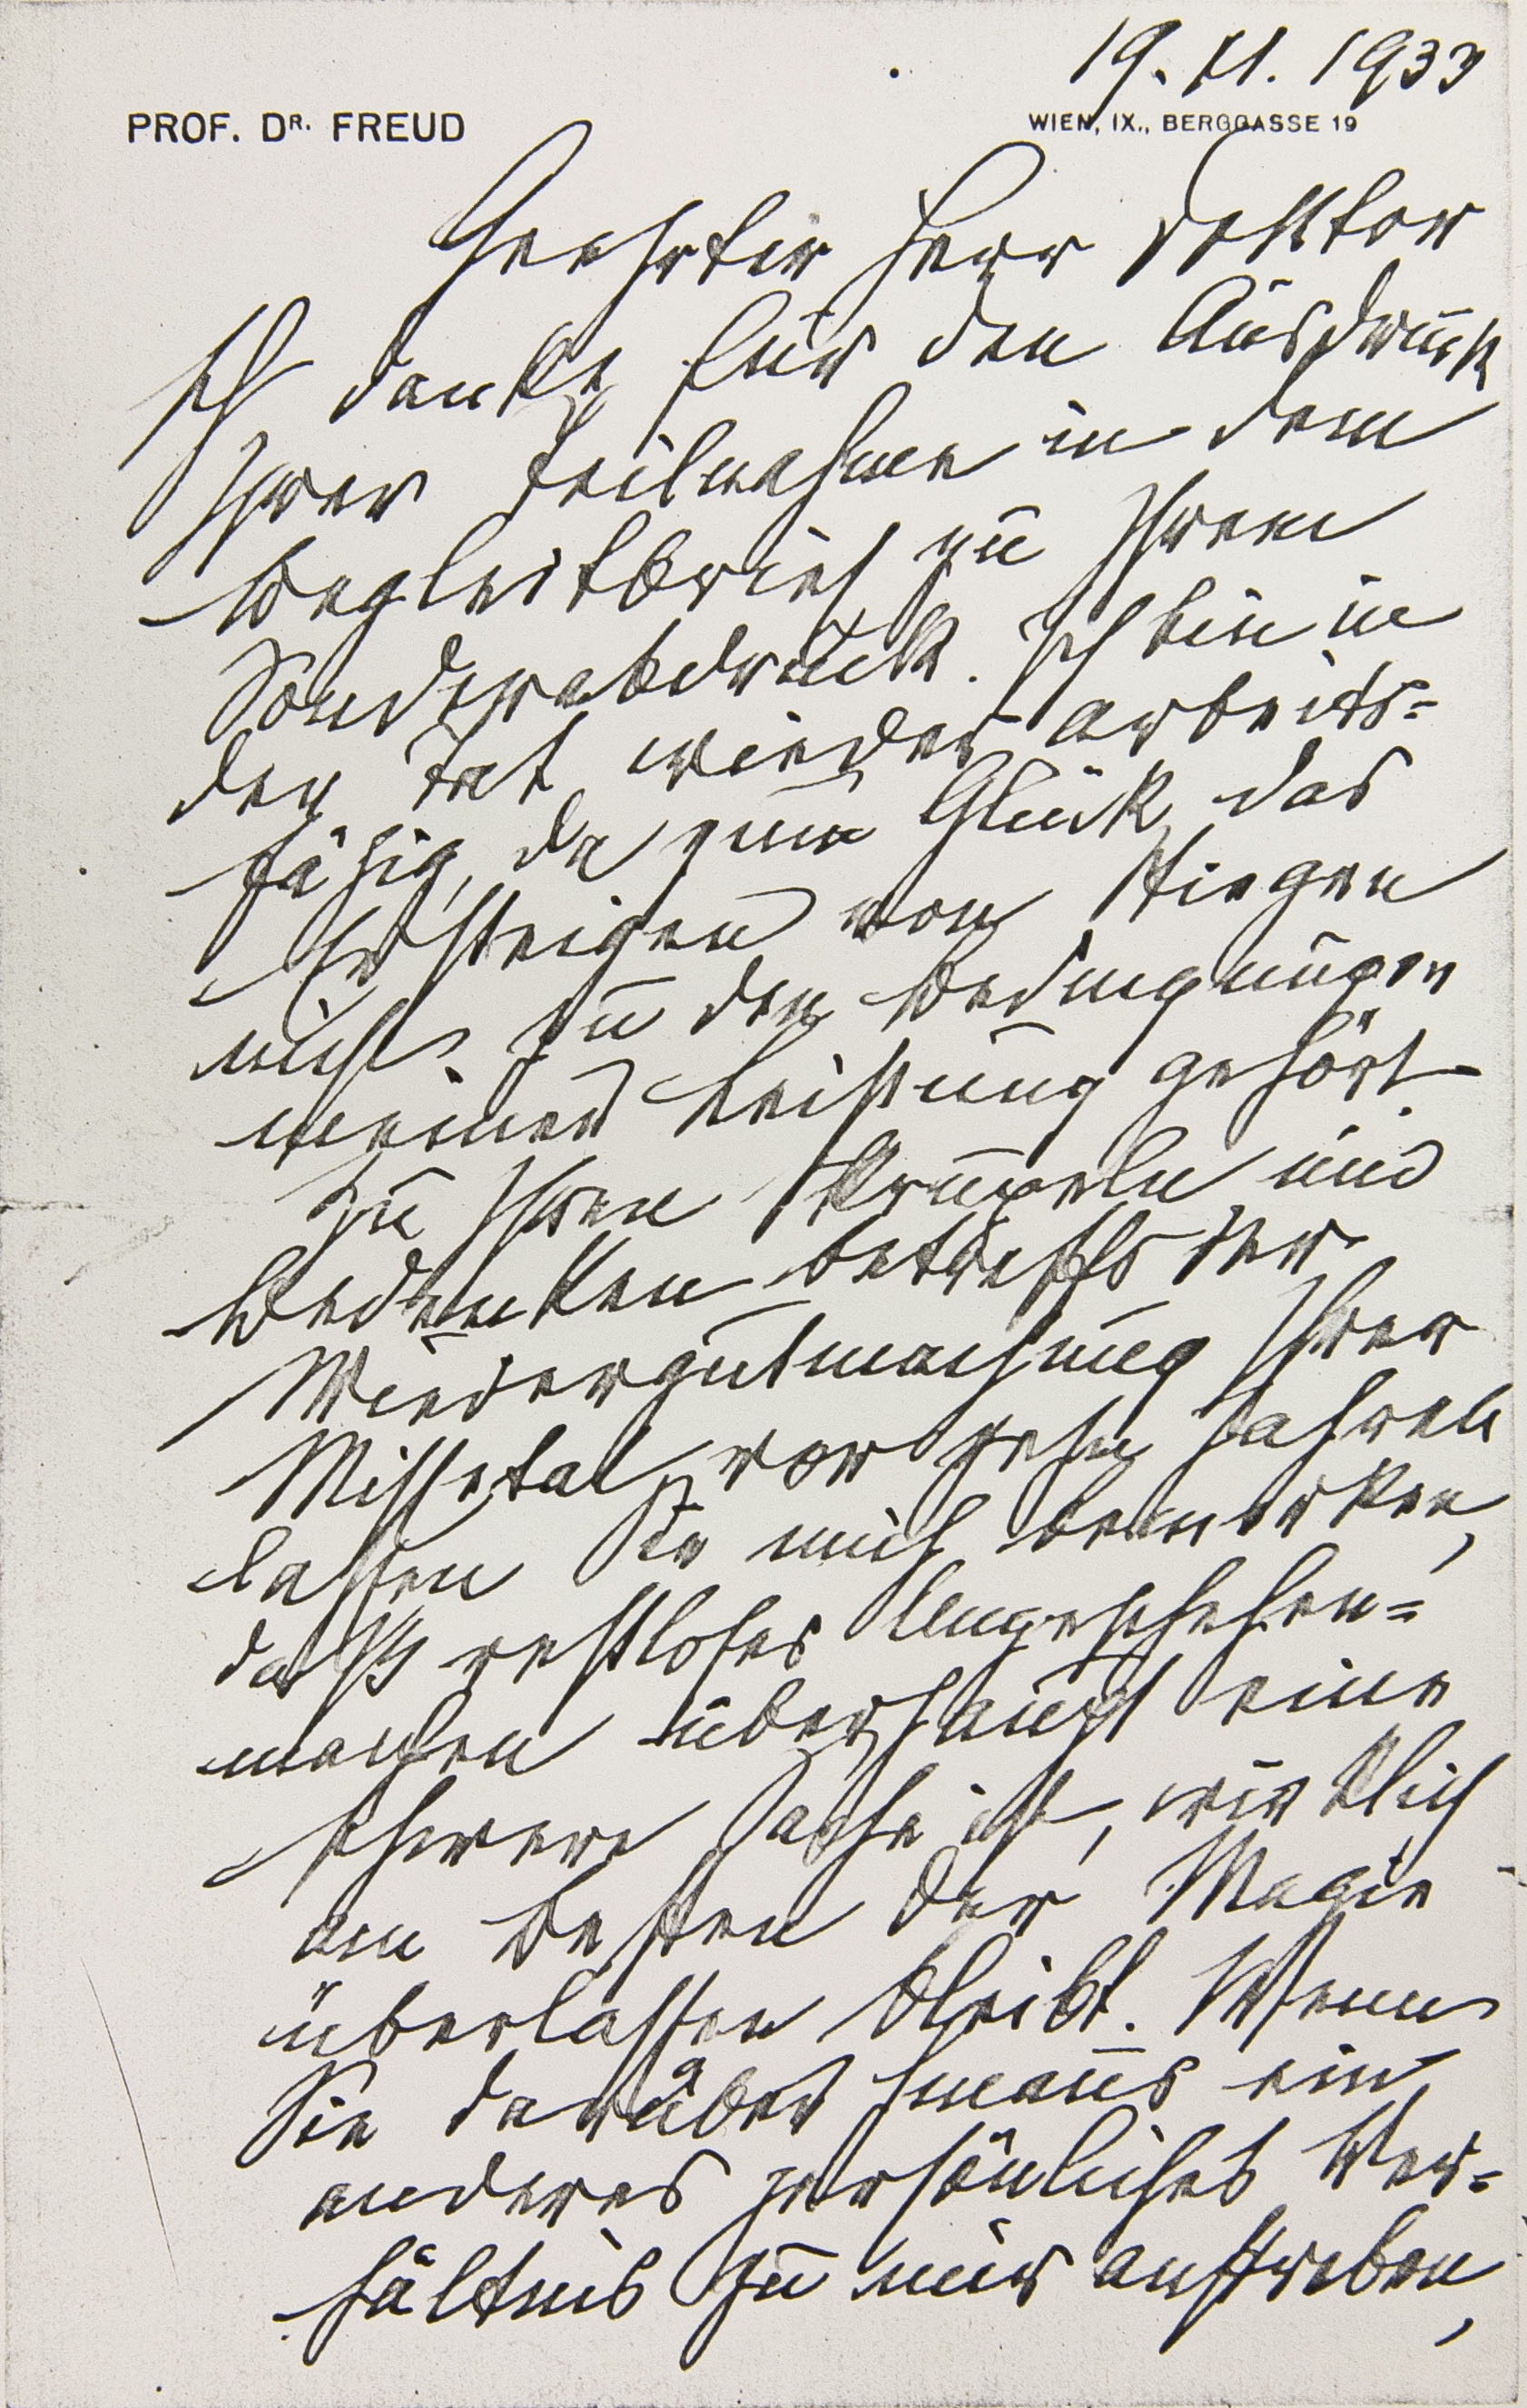 19. XI. 1933
PROF. DR. FREUD
WIEN, IX., BERGGASSE 19
Geehrter Herr Doktor
Ich danke für den Ausdruck
Ihrer Teilnahme in dem
Begleitbrief zu Ihrem
Sonderabdruck. Ich bin in
der Tat wieder arbeits=
fähig, da zum Glück das
Ersteigen von Stiegen
nicht zu den Bedingungen
meiner Leistung gehört.
Zu Ihren Skrupeln und
Bedenken betreffs der
Wiedergutmachung Ihrer
Missetat vor zehn Jahren
lassen Sie mich bemerken,
daß restloses Ungeschehen=
machen überhaupt eine
schwere Sache ist, wirklich
am besten der Magie
überlassen bleibt. Wenn
Sie darüber hinaus ein
anderes persönliches Ver=
hältnis zu mir anstreben,